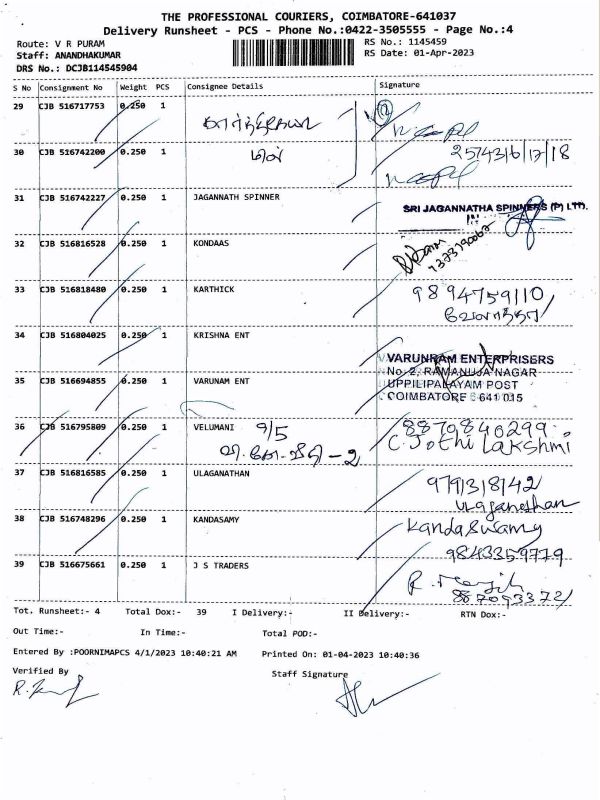 THE PROFESSIONAL COURIERS, COIMBATORE-641037
Delivery Runsheet - PCS - Phone No.:0422-3505555 - Page No.:4
Route: V R PURAM
RS No.: 1145459
Staff: ANANDHAKUMAR
RS Date: 01-Apr-2023
DRS No.: DCJB114545904
S No Consignment No Weight PCS Consignee Details Signature
29 CJB 516717753 0.250 1
30 CJB 516742200 0.250 1
31 CJB 516742227 0.250 1 JAGANNATH SPINNER
SRI JAGANNATHA SPINNERS (P) LTD.
32 CJB 516816528 0.250 1 KONDAAS
33 CJB 516818480 0.250 1 KARTHICK 9894759110
34 CJB 516804025 0.250 1 KRISHNA ENT
VARUNRAM ENTERPRISERS
No. 2, RAMANUJA NAGAR
35 CJB 516694855 0.250 1 VARUNAM ENT UPPILIPALAYAM POST
COIMBATORE - 641 015
36 CJB 516795809 0.250 1 VELUMANI 9/5 8870840299
C. Jothi Lakshmi
37 CJB 516816585 0.250 1 ULAGANATHAN 9791318142
ulaganathan
38 CJB 516748296 0.250 1 KANDASAMY Kandaswamy
9843359779
39 CJB 516675661 0.250 1 J S TRADERS
Tot. Runsheet:- 4 Total Dox:- 39 I Delivery:- II Delivery:- RTN Dox:-
Out Time:- In Time:- Total POD:-
Entered By :POORNIMAPCS 4/1/2023 10:40:21 AM Printed On: 01-04-2023 10:40:36
Verified By Staff Signature